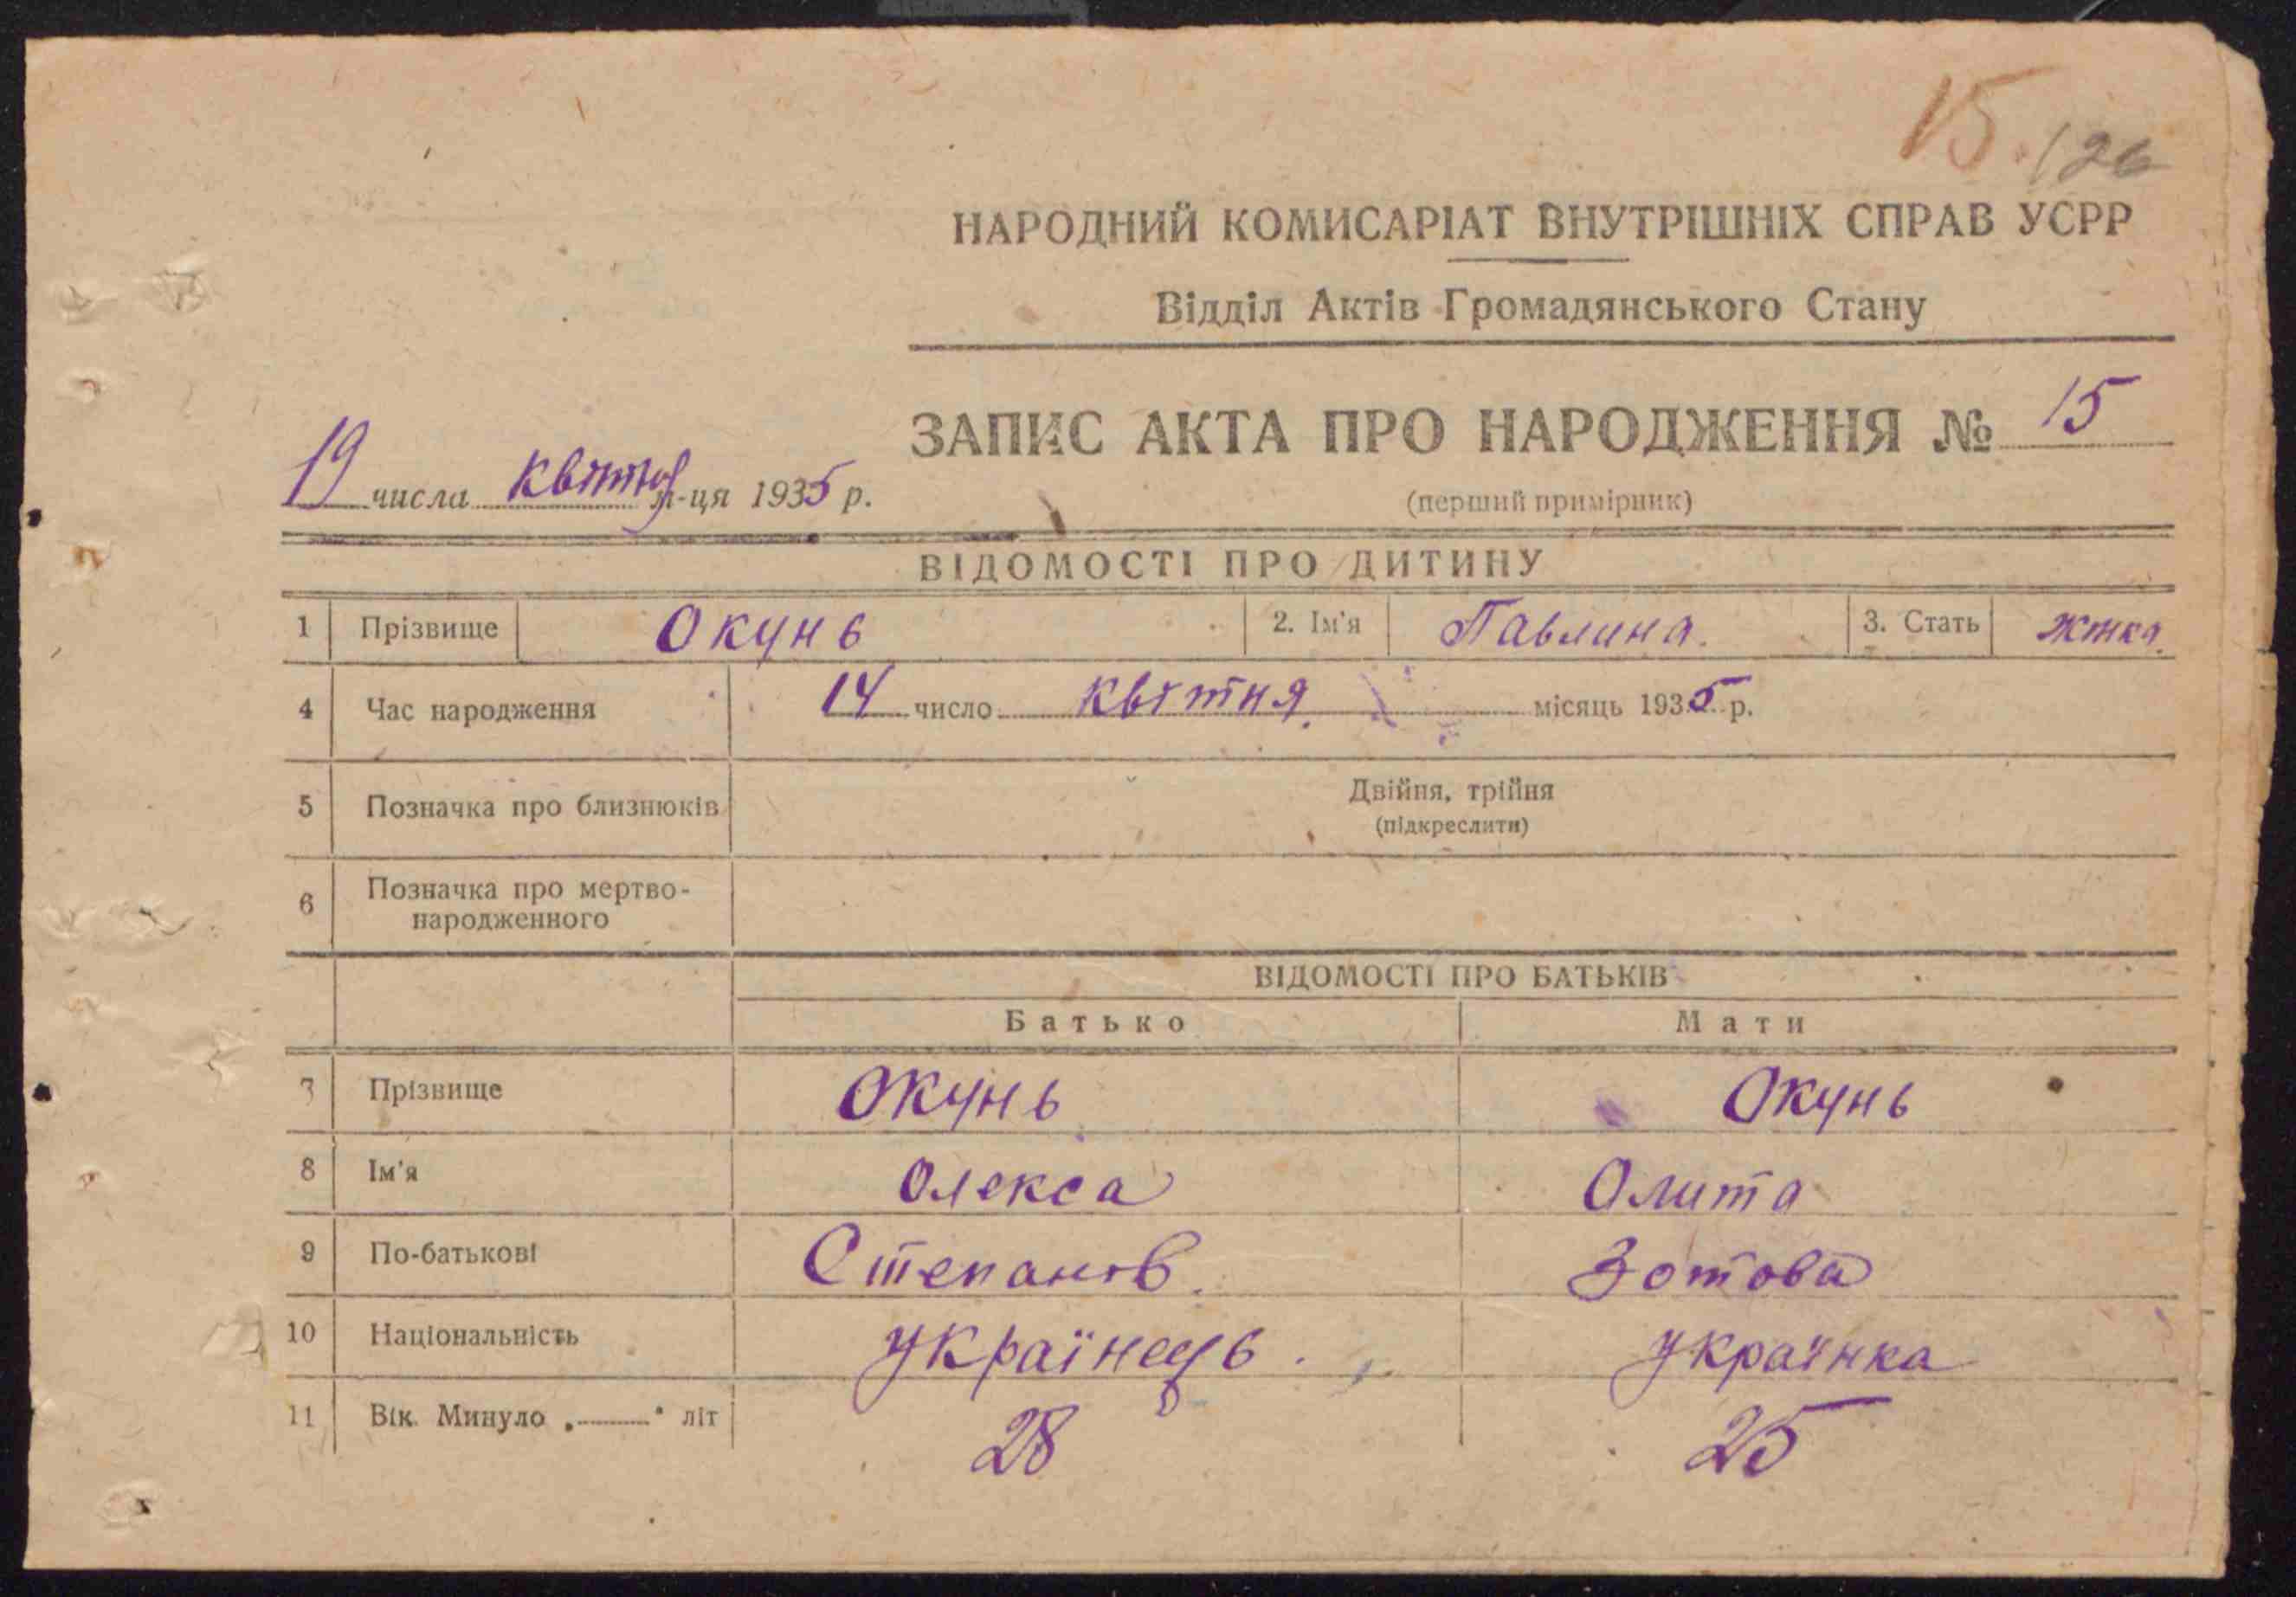 15. 126
НАРОДНИЙ КОМИСАРІАТ ВНУТРІШНІХ СПРАВ УСРР
Відділ Актів Громадянського Стану
ЗАПИС АКТА ПРО НАРОДЖЕННЯ № 15
19 числа квітня м-ця 1935 р.
(перший примірник)
ВІДОМОСТІ ПРО ДИТИНУ
1 Прізвище Окунь 2. Ім'я Павлина. 3. Стать жтка.
4 Час народження 14 число квітня. місяць 1935 р.
5 Позначка про близнюків Двійня, трійня
(підкреслити)
6 Позначка про мертво-
народженного
ВІДОМОСТІ ПРО БАТЬКІВ
Батько Мати
7 Прізвище Окунь Окунь
8 Ім'я Олекса Олита
9 По-батькові Степанів. Зотова
10 Національність українець. українка
11 Вік. Минуло „ " літ 28 25